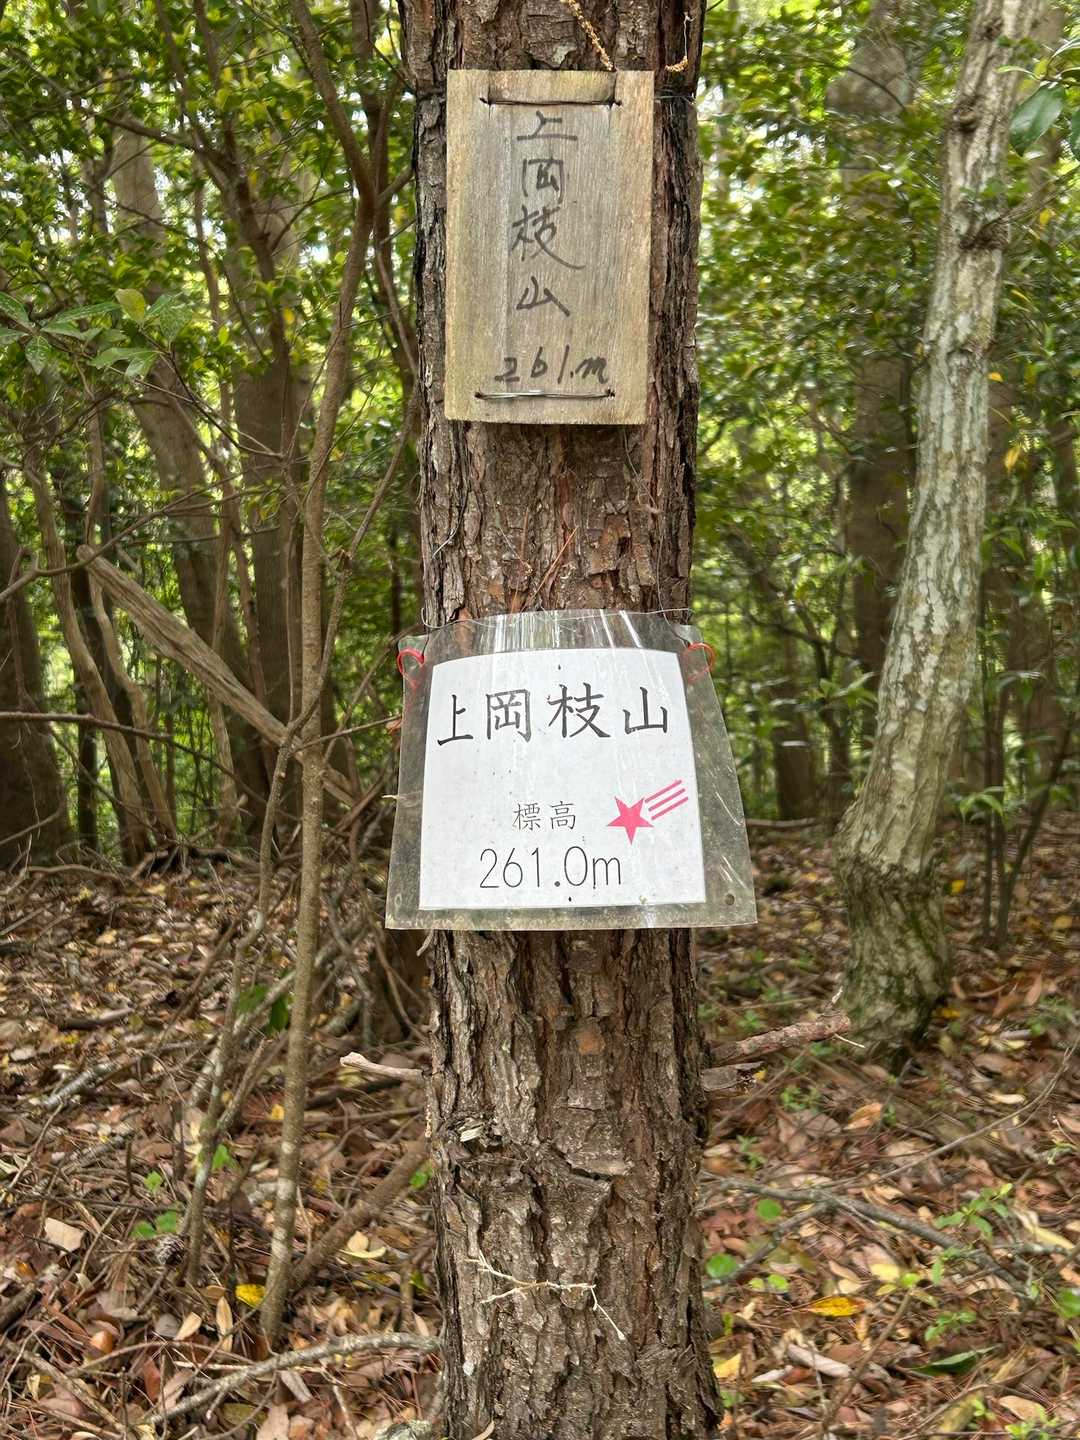 上岡枝山
261.m
上岡枝山
標高
261.0m